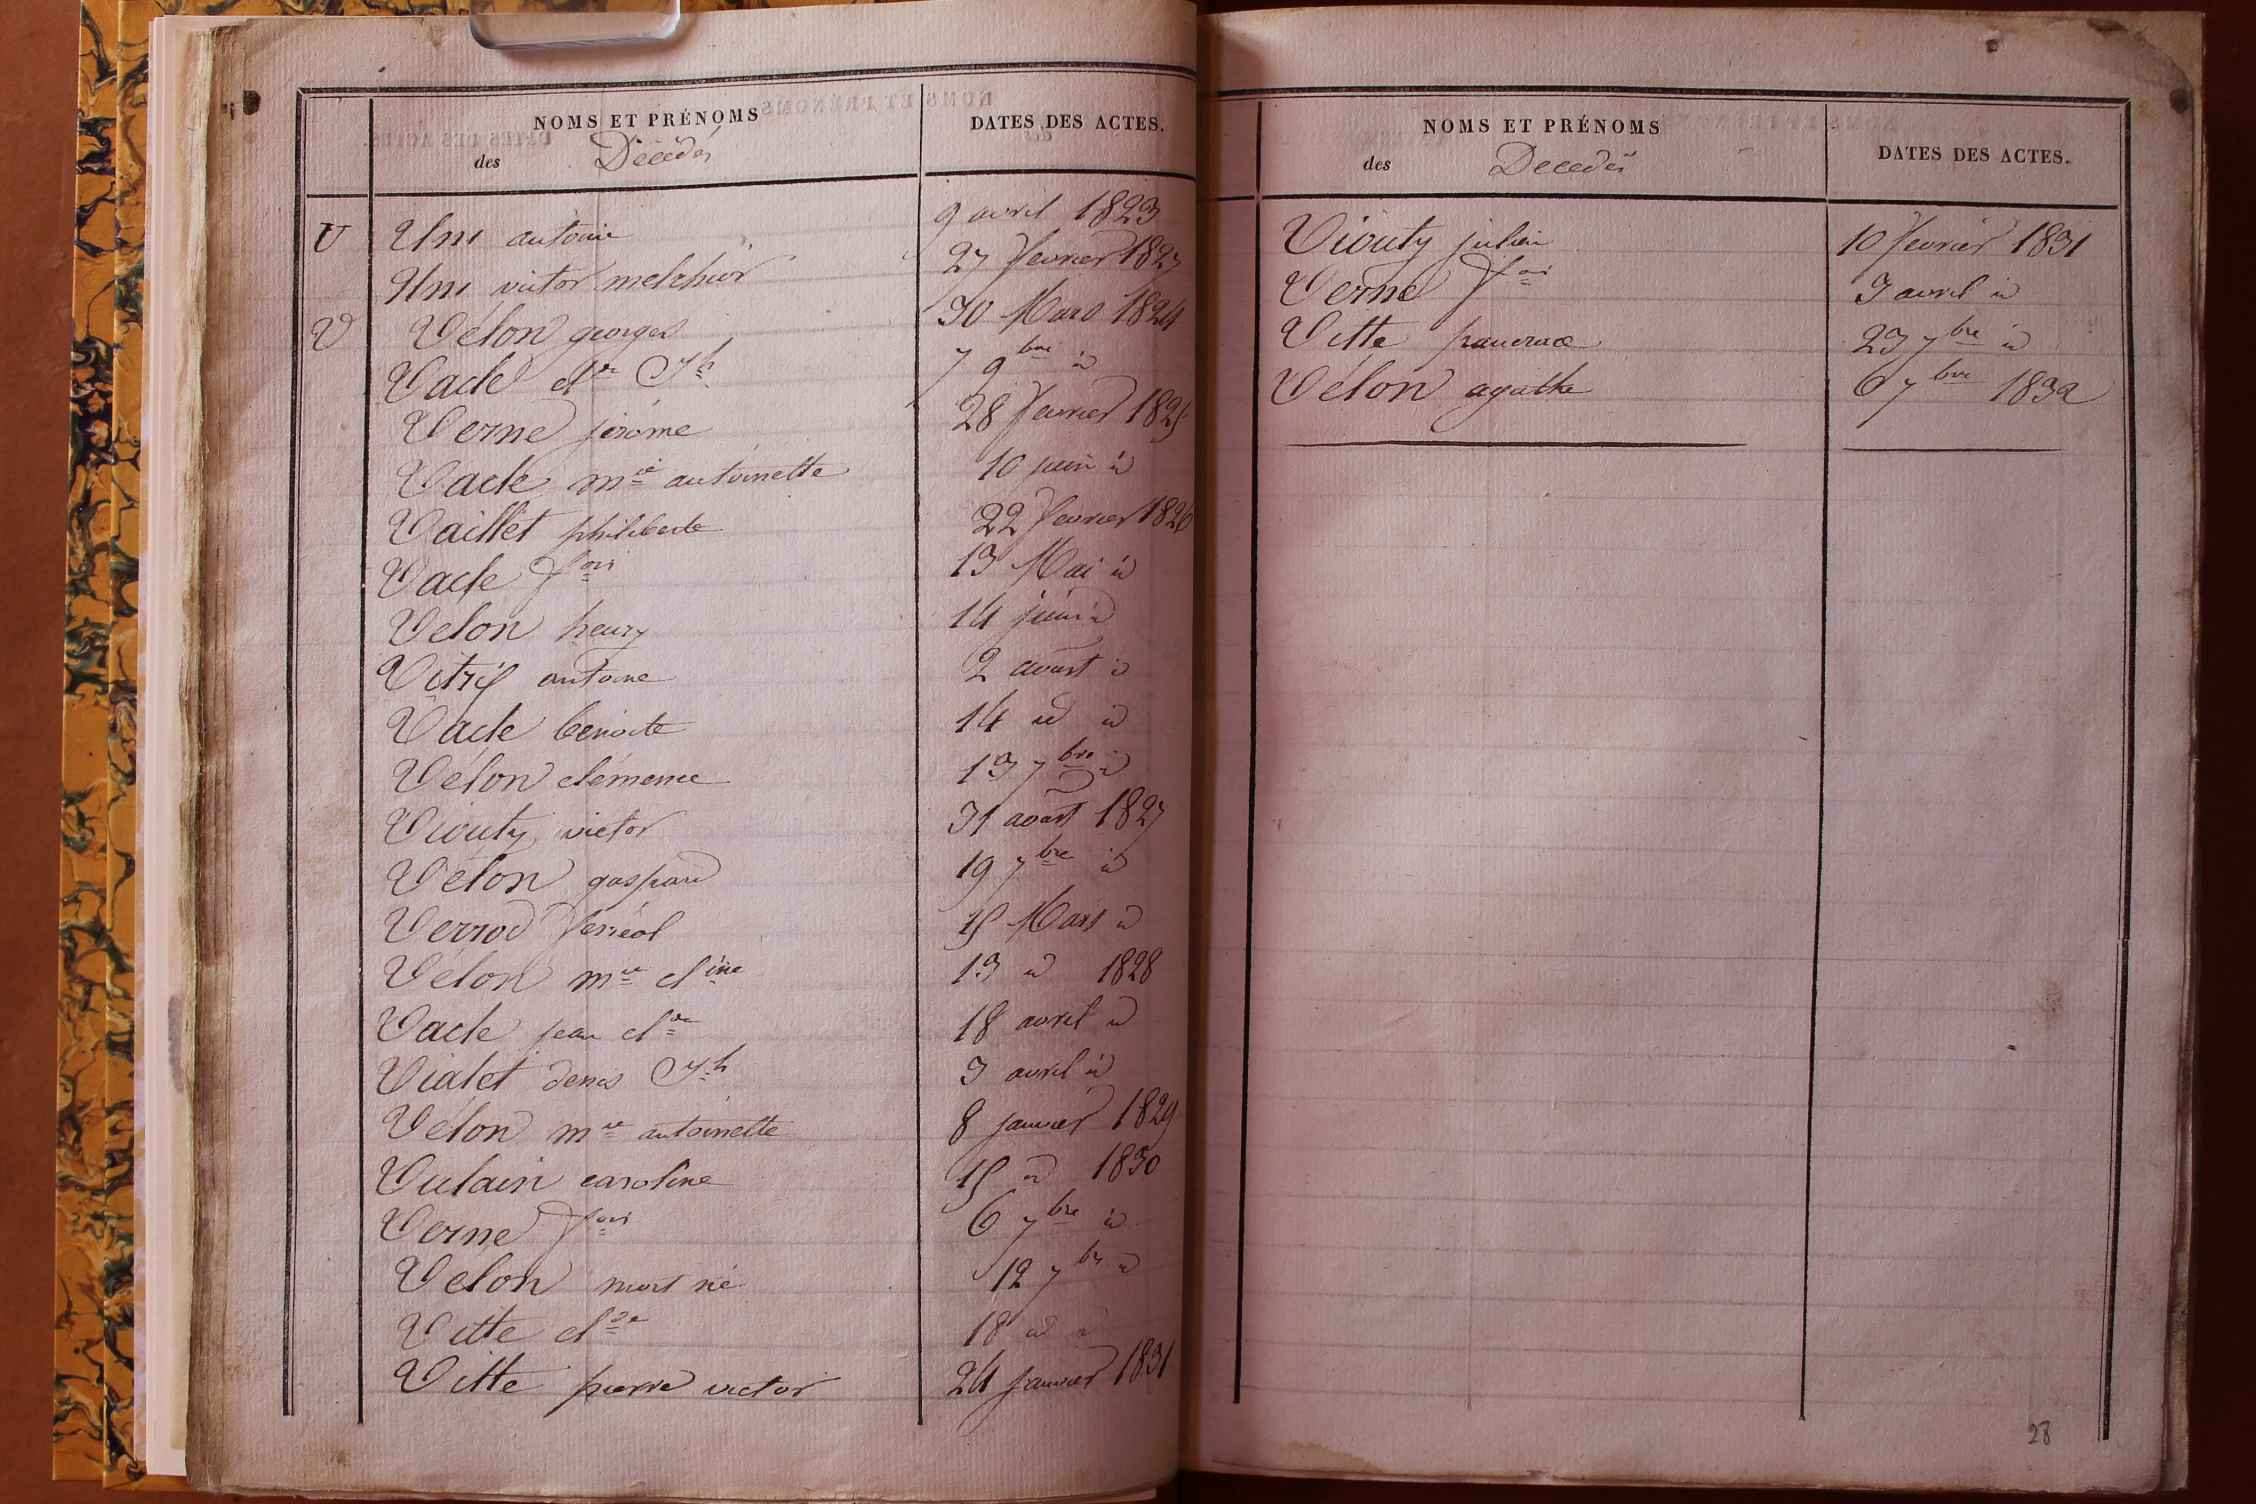 NOMS ET PRÉNOMS
des Décédés
DATES DES ACTES.
U Uni antoine 9 avril 1823
Uni victor melchior 27 fevrier 1827
V Vélon georges 30 Mars 1824
Vacle cl de Jh 7 9bre id
Verne jérôme 28 fevrier 1825
Vacle mie antoinette 10 juin id
Vaillet philiberte 22 fevrier 1826
Vacle fois 13 Mai id
Velon henry 14 juin id
antoine 2 aoust id
Vacle benoite 14 id id
Vélon clémence 13 7bre id
Viouty victor 31 août 1827
Vélon gaspard 19 7bre id
Verrod ferréol 15 Mars id
Vélon mie cl ine 13 id 1828
Vacle jean cl de 18 avril id
Vialet denis Jh 3 avril id
Vélon mie antoinette 8 janvier 1829
Vulain caroline 15 id 1830
Verne fois 6 7bre id
Velon mort né 12 7bre id
Vitte cl de 18 id id
Vitte pierre victor 24 janvier 1831
NOMS ET PRÉNOMS
des Décédés
DATES DES ACTES.
Viouty julien 10 fevrier 1831
Verne fois 3 avril id
Vitte pancrace 23 7bre id
Vélon agathe 6 7bre 1832
28